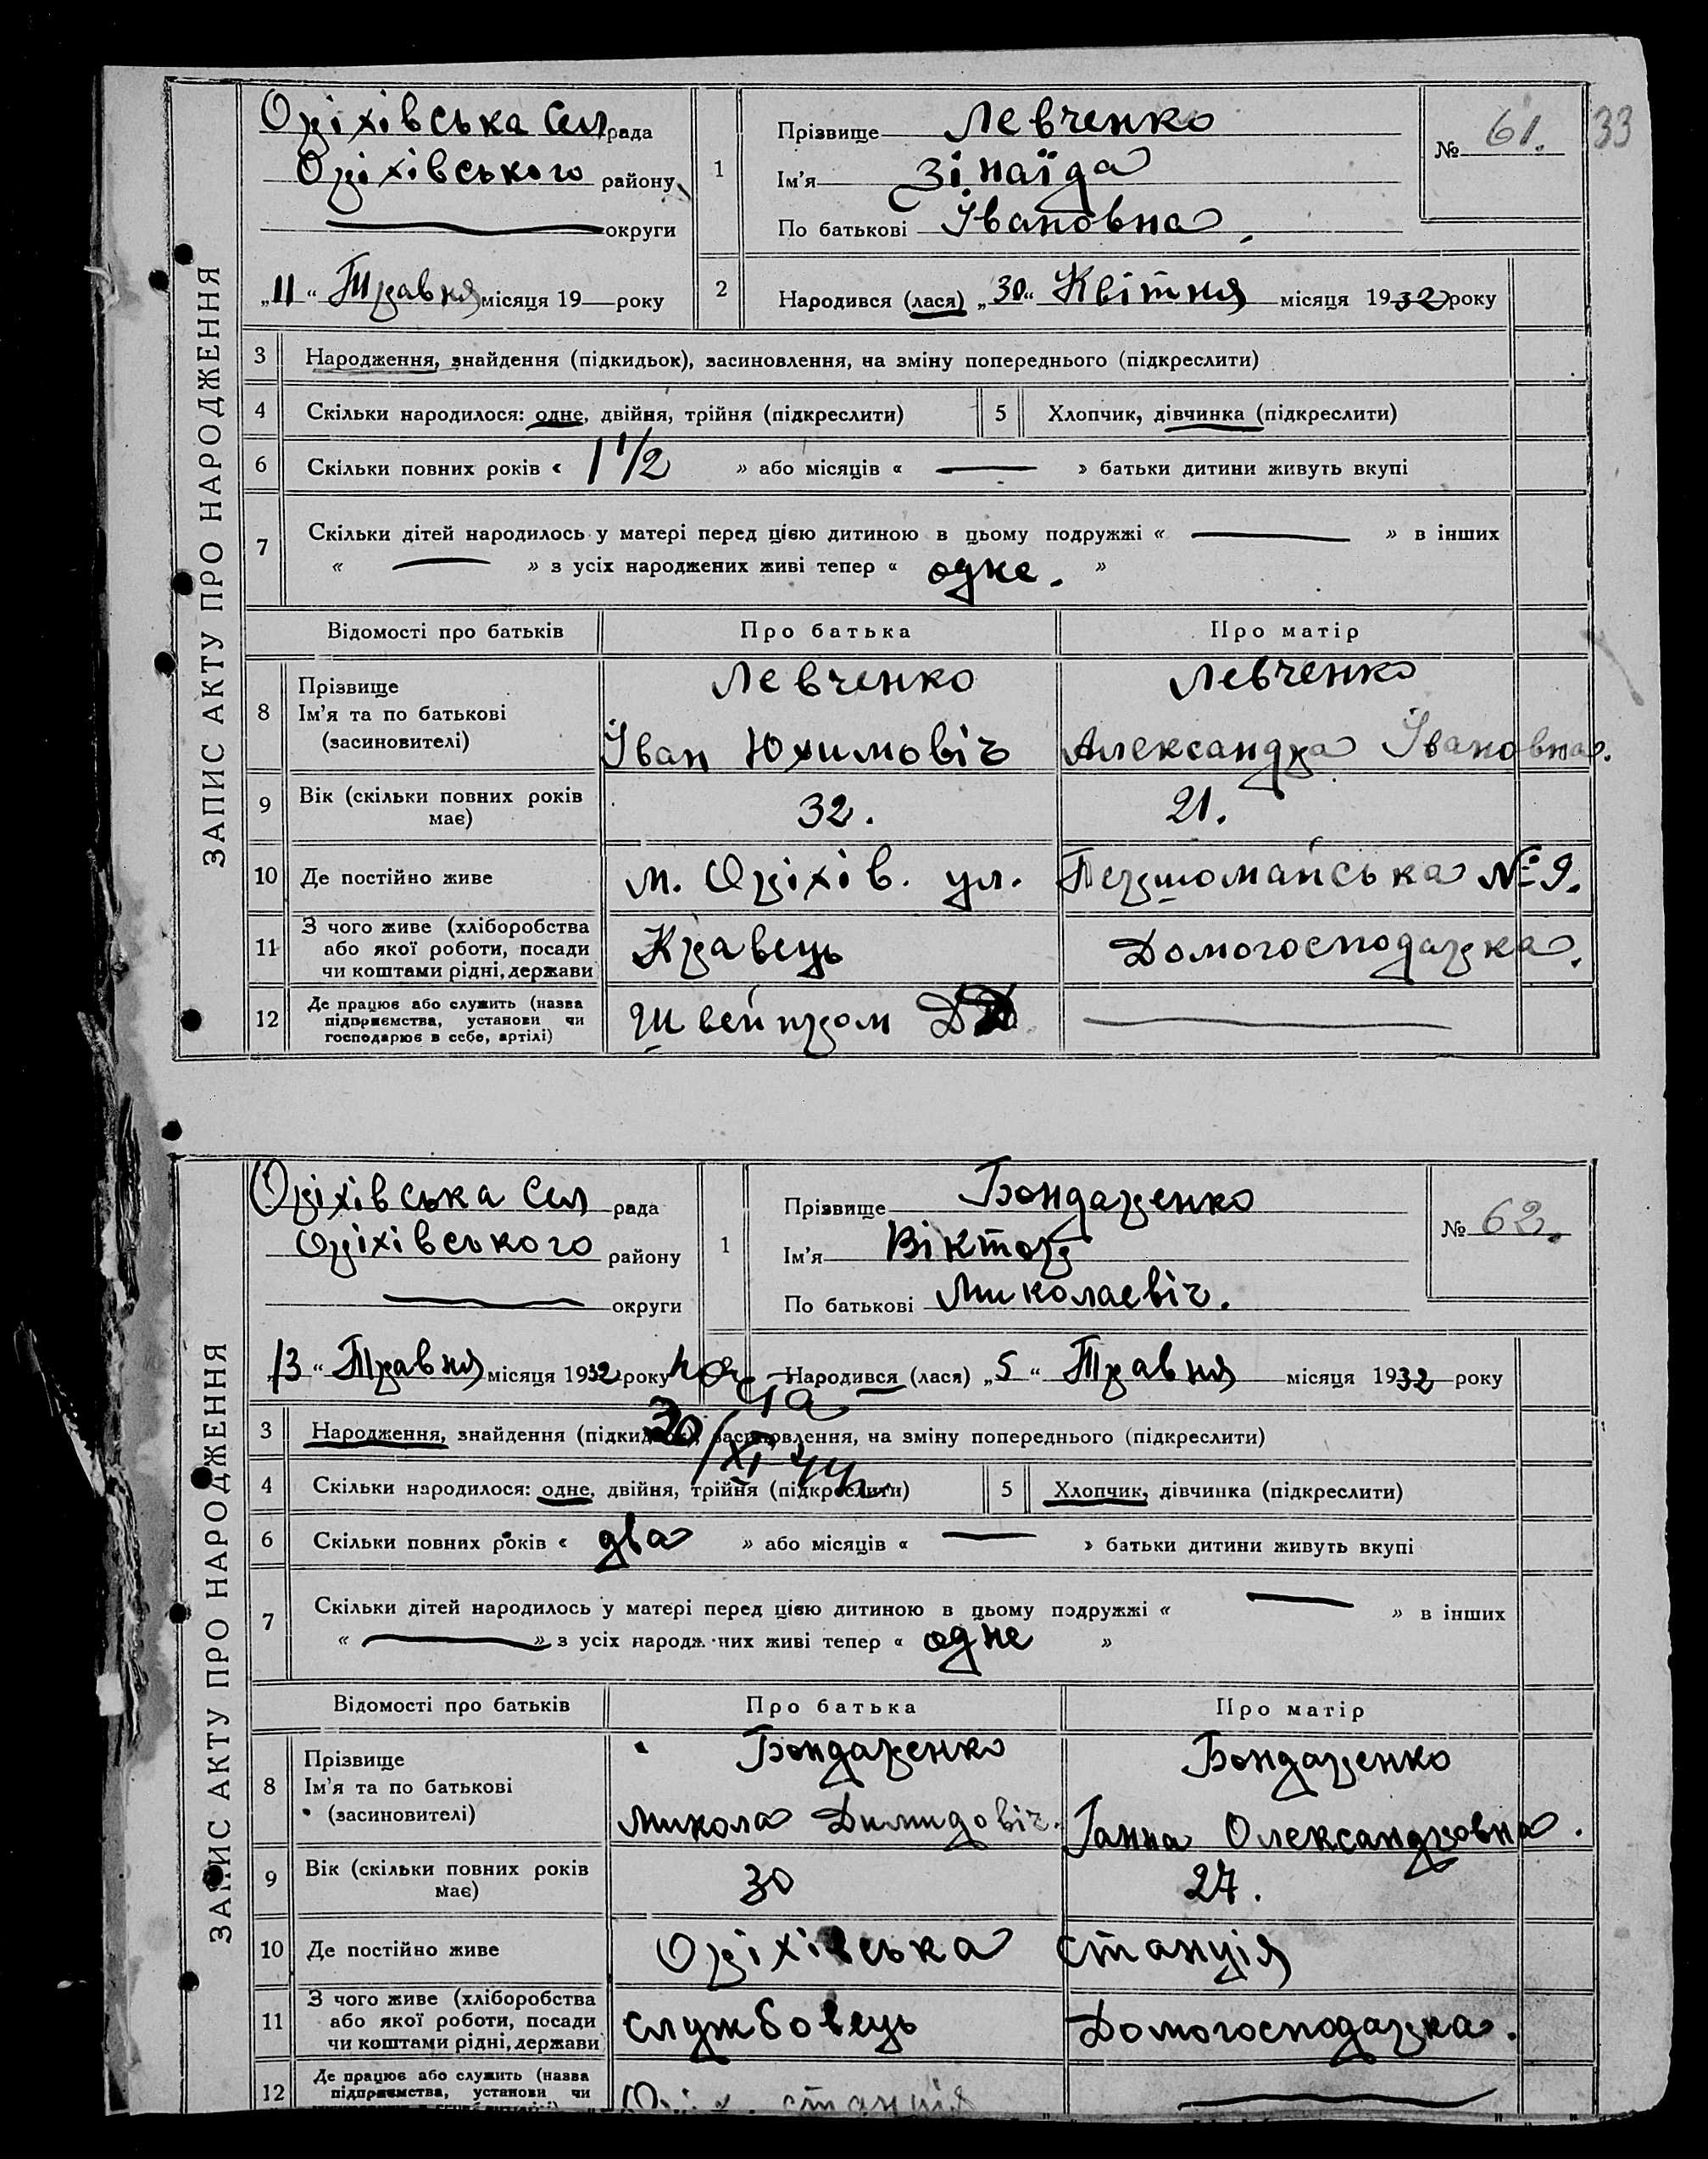 33
ЗАПИС АКТУ ПРО НАРОДЖЕННЯ
Оріхівська Сел рада
Оріхівського району
округи
„11“ Травня місяця 19 року
1
Прізвище Левченко
Ім'я Зінаїда
По батькові Івановна
№ 61.
2 Народився (лася) „30“ Квітня місяця 1932 року
3 Народження, знайдення (підкидьок), засиновлення, на зміну попереднього (підкреслити)
4 Скільки народилося: одне, двійня, трійня (підкреслити) 5 Хлопчик, дівчинка (підкреслити)
6 Скільки повних років « 1 1/2 » або місяців « — » батьки дитини живуть вкупі
7 Скільки дітей народилось у матері перед цією дитиною в цьому подружжі « — » в інших
« — » з усіх народжених живі тепер « одне. »
Відомості про батьків Про батька Про матір
8 Прізвище Левченко Левченко
Ім'я та по батькові
(засиновителі) Іван Юхимовіч Александра Івановна.
9 Вік (скільки повних років
має) 32. 21.
10 Де постійно живе м. Оріхів. ул. Першомайська № 9.
11 З чого живе (хліборобства
або якої роботи, посади
чи коштами рідні, держави Кравець Домогосподарка.
12 Де працює або служить (назва
підприємства, установи чи
господарює в себе, артілі) Швейпром —
ЗАПИС АКТУ ПРО НАРОДЖЕННЯ
Оріхівська Сел рада
Оріхівського району
округи
13 “ Травня місяця 1932 року
1
Прізвище Бондаренко
Ім'я Віктор
По батькові Миколаевіч.
№ 62.
Народився (лася) „5“ Травня місяця 1932 року
30/XI 44
3 Народження, знайдення (підкидьок), засиновлення, на зміну попереднього (підкреслити)
4 Скільки народилося: одне, двійня, трійня (підкреслити) 5 Хлопчик, дівчинка (підкреслити)
6 Скільки повних років « два » або місяців « — » батьки дитини живуть вкупі
7 Скільки дітей народилось у матері перед цією дитиною в цьому подружжі « — » в інших
« — » з усіх народж них живі тепер « одне »
Відомості про батьків Про батька Про матір
8 Прізвище Бондаренко Бондаренко
Ім'я та по батькові
(засиновителі) Микола Димидовіч. Ганна Олександровна.
9 Вік (скільки повних років
має) 30 27.
10 Де постійно живе Оріхівська станція
11 З чого живе (хліборобства
або якої роботи, посади
чи коштами рідні, держави службовець Домогосподарка.
12 Де працює або служить (назва
підприємства, установи чи
Оріх. станція —